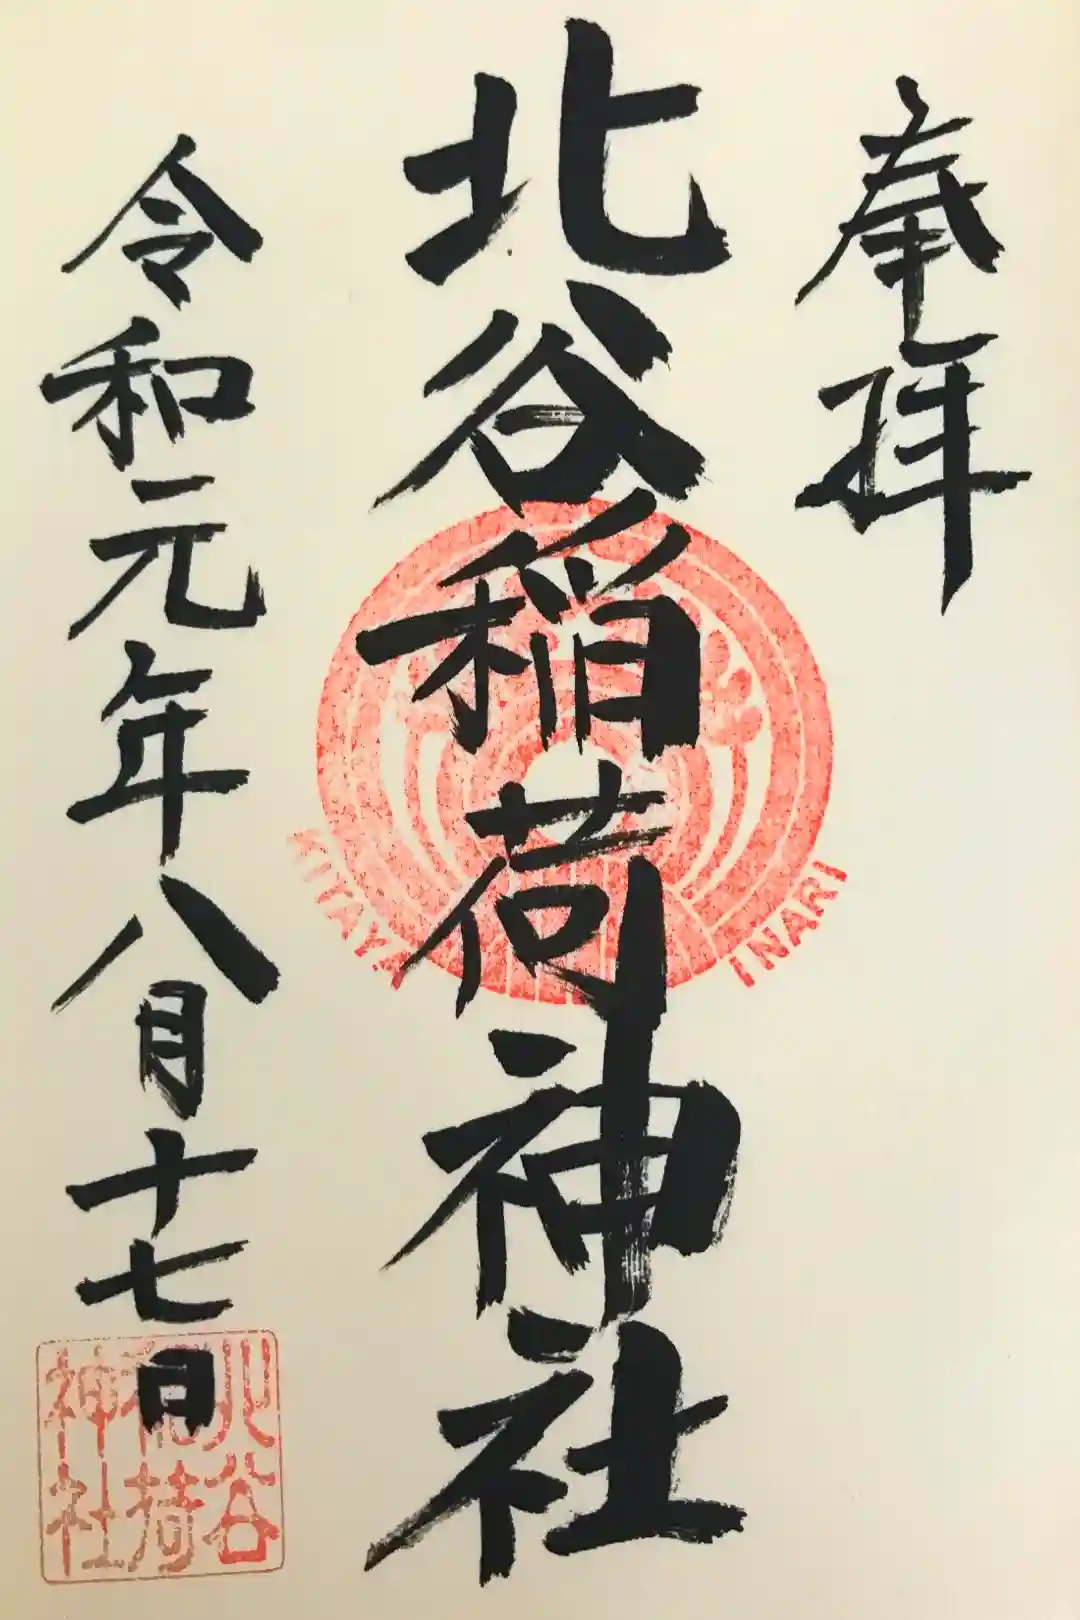 奉拝
北谷稲荷神社
KITAYA INARI
令和元年八月十七日
北谷
稲荷
神社